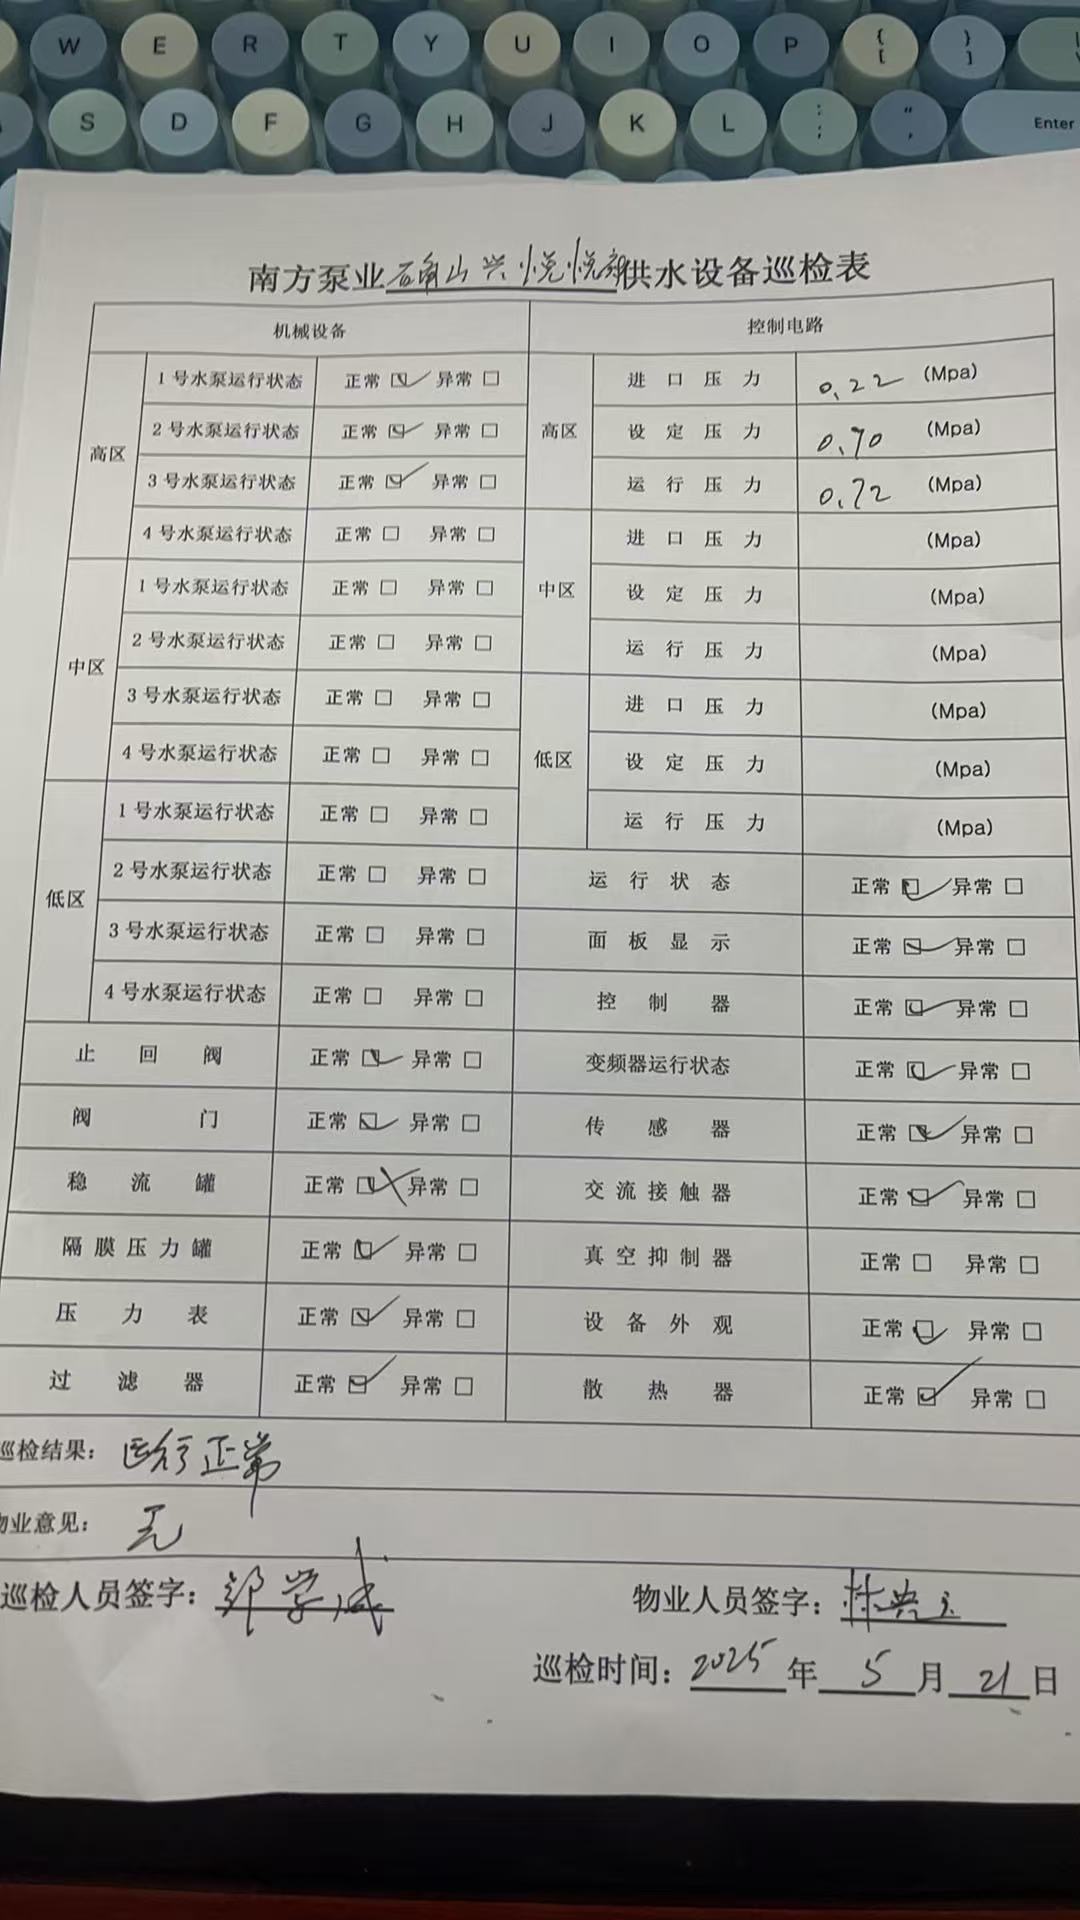 W E R T Y U I O P { [ } ]
S D F G H J K L : ; " , Enter
南方泵业石角山兴悦悦府供水设备巡检表
机械设备 控制电路
高区 1号水泵运行状态 正常 ☑ 异常 □ 高区 进口压力 0.22 (Mpa)
2号水泵运行状态 正常 ☑ 异常 □ 设定压力 0.70 (Mpa)
3号水泵运行状态 正常 ☑ 异常 □ 运行压力 0.72 (Mpa)
4号水泵运行状态 正常 □ 异常 □ 中区 进口压力 (Mpa)
中区 1号水泵运行状态 正常 □ 异常 □ 设定压力 (Mpa)
2号水泵运行状态 正常 □ 异常 □ 运行压力 (Mpa)
3号水泵运行状态 正常 □ 异常 □ 低区 进口压力 (Mpa)
4号水泵运行状态 正常 □ 异常 □ 设定压力 (Mpa)
低区 1号水泵运行状态 正常 □ 异常 □ 运行压力 (Mpa)
2号水泵运行状态 正常 □ 异常 □ 运行状态 正常 ☑ 异常 □
3号水泵运行状态 正常 □ 异常 □ 面板显示 正常 ☑ 异常 □
4号水泵运行状态 正常 □ 异常 □ 控制器 正常 ☑ 异常 □
止回阀 正常 ☑ 异常 □ 变频器运行状态 正常 ☑ 异常 □
阀门 正常 ☑ 异常 □ 传感器 正常 ☑ 异常 □
稳流罐 正常 ☑ 异常 □ 交流接触器 正常 ☑ 异常 □
隔膜压力罐 正常 ☑ 异常 □ 真空抑制器 正常 □ 异常 □
压力表 正常 ☑ 异常 □ 设备外观 正常 ☑ 异常 □
过滤器 正常 ☑ 异常 □ 散热器 正常 ☑ 异常 □
巡检结果: 运行正常
物业意见: 无
巡检人员签字: 邹学成 物业人员签字:
巡检时间: 2025 年 5 月 21 日